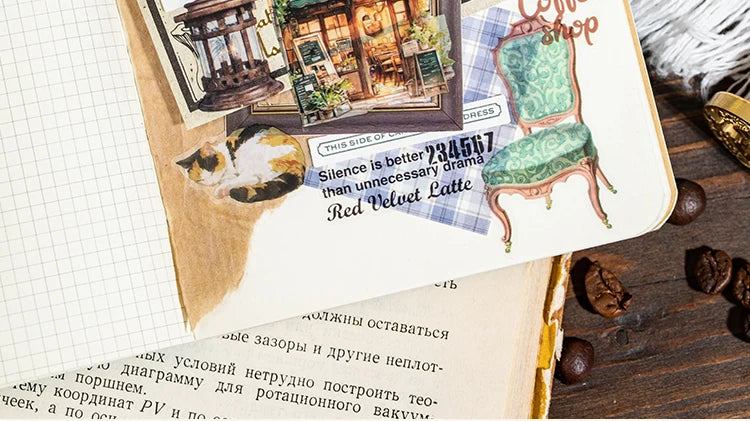 Coffee
shop
THIS SIDE OF
DRESS
234567
Silence is better
than unnecessary drama
Red Velvet Latte
ть
должны оставаться
вые зазоры и другие неплот-
ных условий нетрудно построить тео-
ую диаграмму для ротационного вакуум-
м поршнем.
тему координат PV и по
чеек, а по оси